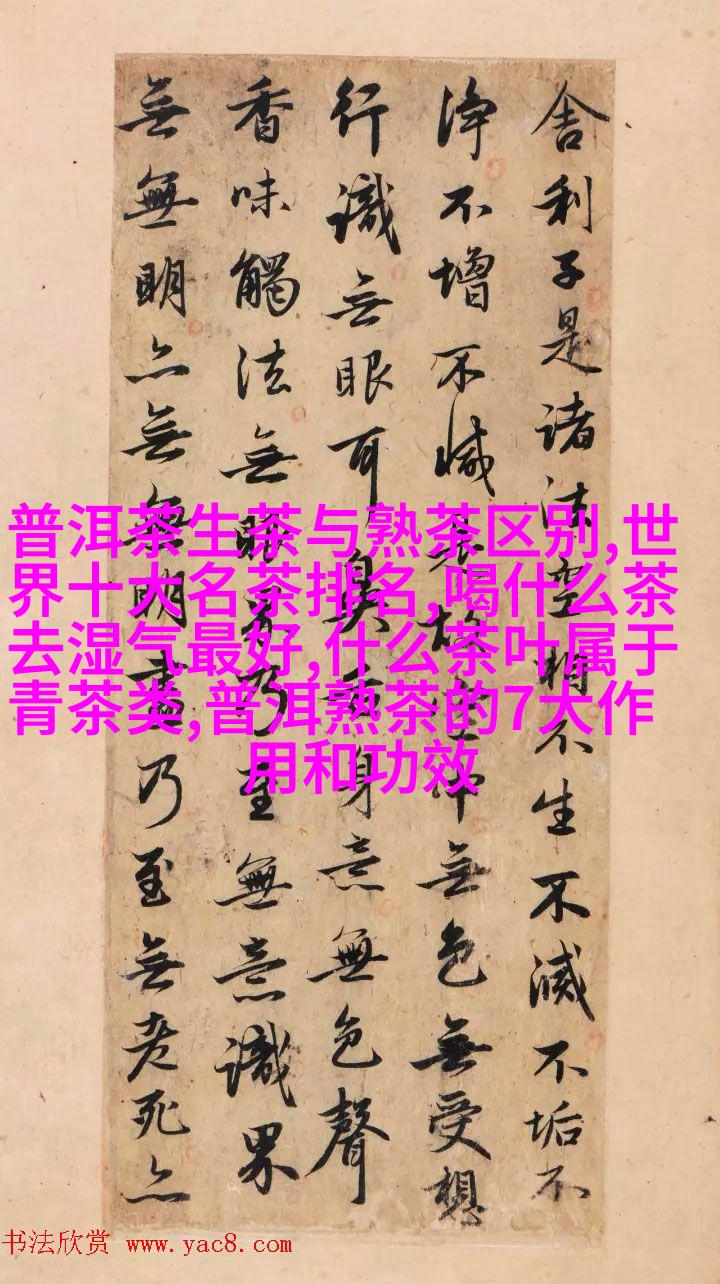 舍利子是諸法空相不生不滅不垢不
淨不增不減是故空中無色無受想
行識無眼耳鼻舌身意無色聲
香味觸法無眼界乃至無意識界
無無明亦無無明盡乃至無老死亦
普洱茶生茶与熟茶区别,世
界十大名茶排名,喝什么茶
去湿气最好,什么茶叶属于
青茶类,普洱熟茶的7大作
用和功效
书法欣赏 www.yac8.com